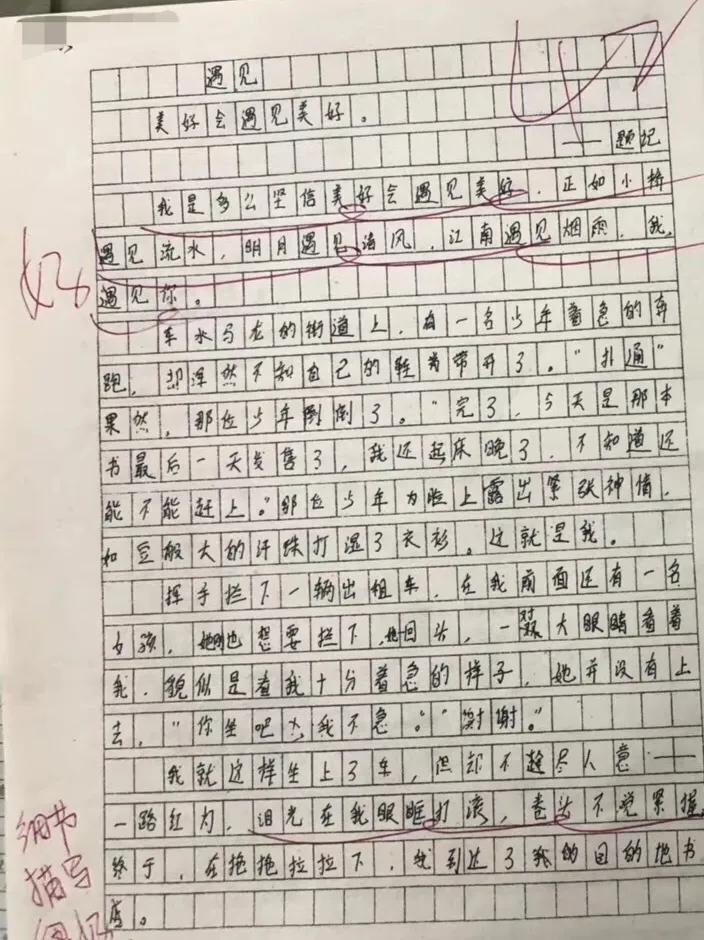 遇见
美好会遇见美好。
——题记
我是多么坚信美好会遇见美好，正如小桥
遇见流水，明月遇见海风，江南遇见烟雨，我
遇见你。
好
车水马龙的街道上，有一名少年着急的奔
跑，却浑然不知自己的鞋带开了。“扑通”
果然，那位少年倒了。“完了，今天是那本
书最后一天发售了，我还起床晚了，不知道还
能不能赶上。”那位少年脸上露出紧张神情，
如豆般大的汗珠打湿了衣衫。这就是我。
挥手拦下一辆出租车，在我前面还有一名
女孩，她也想要拦下，她回头，一双大眼睛看着
我，貌似是看我十分着急的样子，她并没有上
去，“你坐吧，我不急。”“谢谢。”
我就这样坐上了车，但却不趁尽人意——
一路红灯，泪光在我眼眶打滚，拳头不觉紧握。
终于，在拖拖拉拉下，我到达了我的目的地书
店。
细节
描写